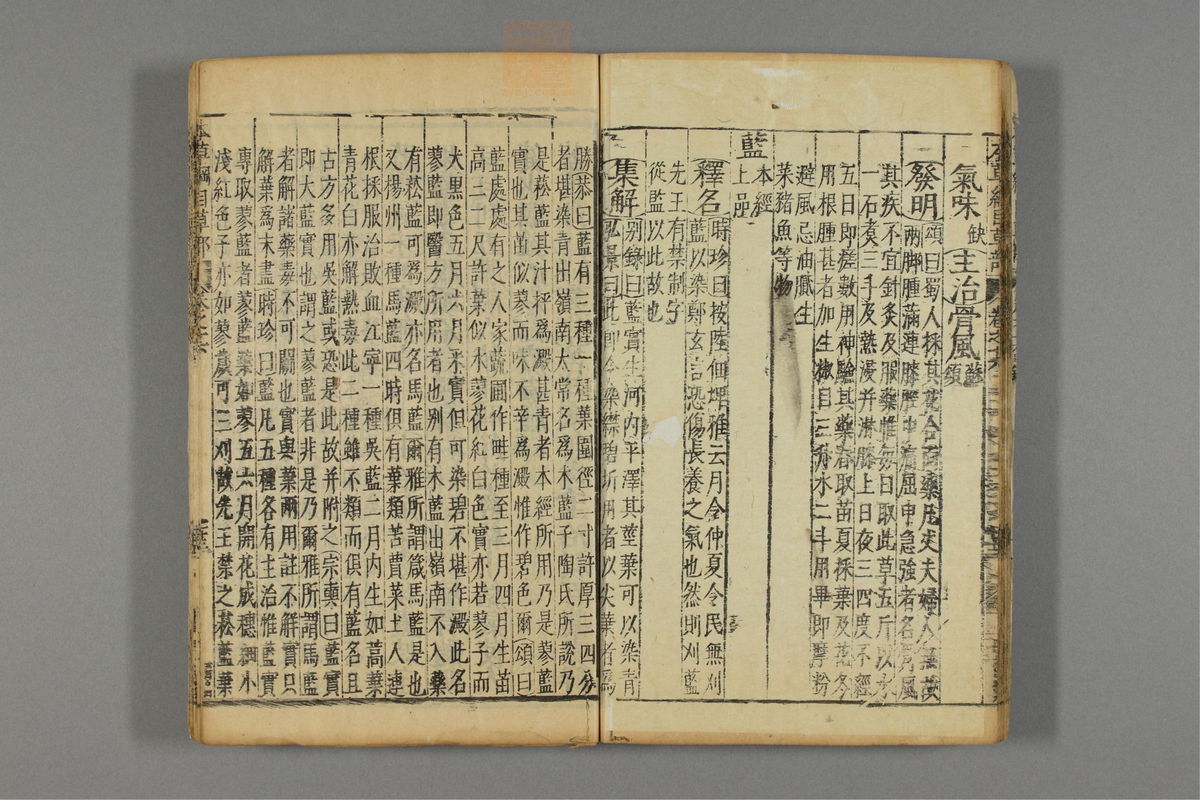 氣味缺主治骨風蘇頌
發明頌曰蜀人採其花合藥凡丈夫婦人無
兩脚腫滿連膝脛中痛屈申急強者名骨風
其疾不宜針灸及服藥惟每日取此草五斤以水
一石煑三斗及熱浸并淋膝上日夜三四度不經
五日即瘥數用神驗其藥春取苗夏採葉及秋冬
用根腫甚者加生椒目三升水二斗用畢即摩粉
避風忌油膩生
菜豬魚等物
藍本經上品
釋名時珍曰按陸佃埤雅云月令仲夏令民無刈
藍以染鄭玄言恐傷長養之氣也然則刈藍
先王有禁制字
從監以此故也
集解别錄曰藍實生河内平澤其莖葉可以染青
弘景曰此即今染緤碧所用者以尖葉者爲
勝恭曰藍有三種一種葉圍徑二寸許厚三四分
者堪染青出嶺南太常名爲木藍子陶氏所說乃
是菘藍其汁抨爲澱甚青者本經所用乃是蓼藍
實也其苗似蓼而味不辛爲澱惟作碧色爾頌曰
藍處處有之人家蔬圃作畦種至三月四月生苗
高三二尺許葉似水蓼花紅白色實亦若蓼子而
大黑色五月六月采實但可染碧不堪作澱此名
蓼藍即醫方所用者也别有木藍出嶺南不入藥
有菘藍可爲澱亦名馬藍爾雅所謂葴馬藍是也
又楊州一種馬藍四時俱有葉類苦蕒菜土人連
根採服治敗血江寧一種吳藍二月内生如蒿葉
青花白亦解熱毒此二種雖不類而俱有藍名且
古方多用吳藍或恐是此故并附之宗奭曰藍實
即大藍實也謂之蓼藍者非是乃爾雅所謂馬藍
者解諸藥毒不可闕也實與葉兩用註不解實只
解葉爲未盡時珍曰藍凡五種各有主治惟藍實
專取蓼藍者蓼藍葉如蓼五六月開花成穗細小
淺紅色子亦如蓼歲可三刈故先王禁之菘藍葉